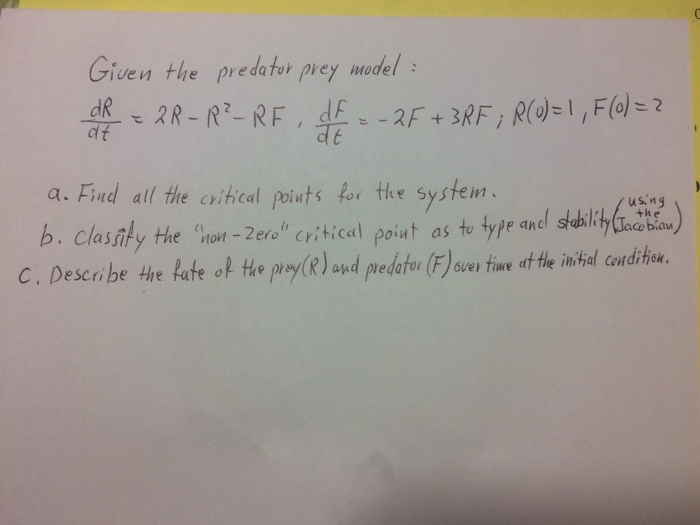 Given the predator prey model :
dR/dt = 2R - R² - RF , dF/dt = -2F + 3RF ; R(0)=1 , F(0)=2
a. Find all the critical points for the system.
b. Classify the "non-zero" critical point as to type and stability (using the Jacobian)
C. Describe the fate of the prey (R) and predator (F) over time at the initial condition.